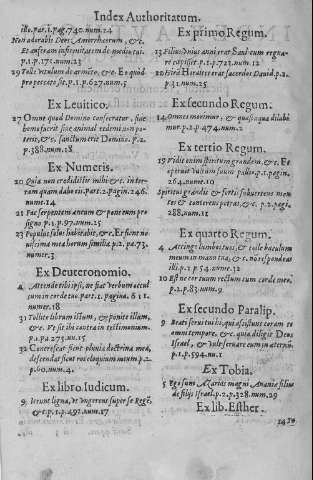 Index Authoritatum.
illi. par. 1. pag. 740. num. 24
Non adorabis Deos Amorrhæorum, &c.
Et auferam infirmitatem de medio tui.
p. 1. p. 175. num. 23
29 Tolle vitulum de armento, &c. Et quod
pro peccato sit. p. 1. p. 627. num. 5
Ex Leuitico.
27 Omne quod Domino consecratur, siue
homo fuerit siue animal redemi non po-
terit, &c. sanctum erit Domino. p. 2.
p. 388. num. 18
Ex Numeris.
20 Quia non credidistis mihi &c. in ter-
ram quam dabo eis. part. 2. pagin. 246.
num. 14
21 Fac serpentem aneum & pone eum pro
signo. p. 1. p. 97. num. 25
23 Populus solus habitabit, &c. Et fiene no-
uissima mea horum similia. p. 2. pa. 73.
numer. 3
Ex Deuteronomio.
4 Attende tibi ipsi, ne fiat verbum occul
tum in corde tuo. part. 1. pagina. 611.
numer. 18
31 Tollite librum istum, & ponite illum,
&c. Vt sit ibi contra in testimonium.
p. 1. pa. 275. num. 15
32 Concrescat sicut pluuia doctrina mea,
descendat sicut ros eloquium meum. p. 2.
p. 60. num. 4.
Ex libro Iudicum.
9 Ierunt ligna, vt vngerent super se Regē
&c. p. 1. p. 492. num. 17
Ex primo Regum.
13 Filius vnius anni erat Saul cum regna-
re cœpisset. p. 1. p. 721. num. 12
p. 31. num. 25
Ex secundo Regum.
14 Omnes morimur, & quasi aqua dilabi-
mur. p. 2. p. 474. num. 2
Ex tertio Regum.
19 Vidit enim spiritum grandem, &c. Et
operuit vultum suum pallio. p. 1. pagin.
264. num. 10
Spiritus grandis & fortis subuertens mon-
tes & conterens petras, &c. p. 2. pagi.
288. num. 11
Ex quarto Regum.
4 Accinge lumbos tuos, & tolle baculum
meum in manu tua, & c. no respondeas
illi. p. 1. p. 54. num. 32
10 Est ne cor tuum rectum cum corde meo?
p. 2. p. 83. num. 9
Ex secundo Paralip.
9 Beati serui tui hi, qui asistunt coram te
omni tempore. &c. quia diligit Deus
Israel, & vult seruare eum in aternū.
p. 1. p. 594. nu. 1
Ex Tobia.
5 Ego sum Azarias magni Ananiæ filius
de filijs Israel. p. 2. p. 328. num. 29
Ex lib. Esther.